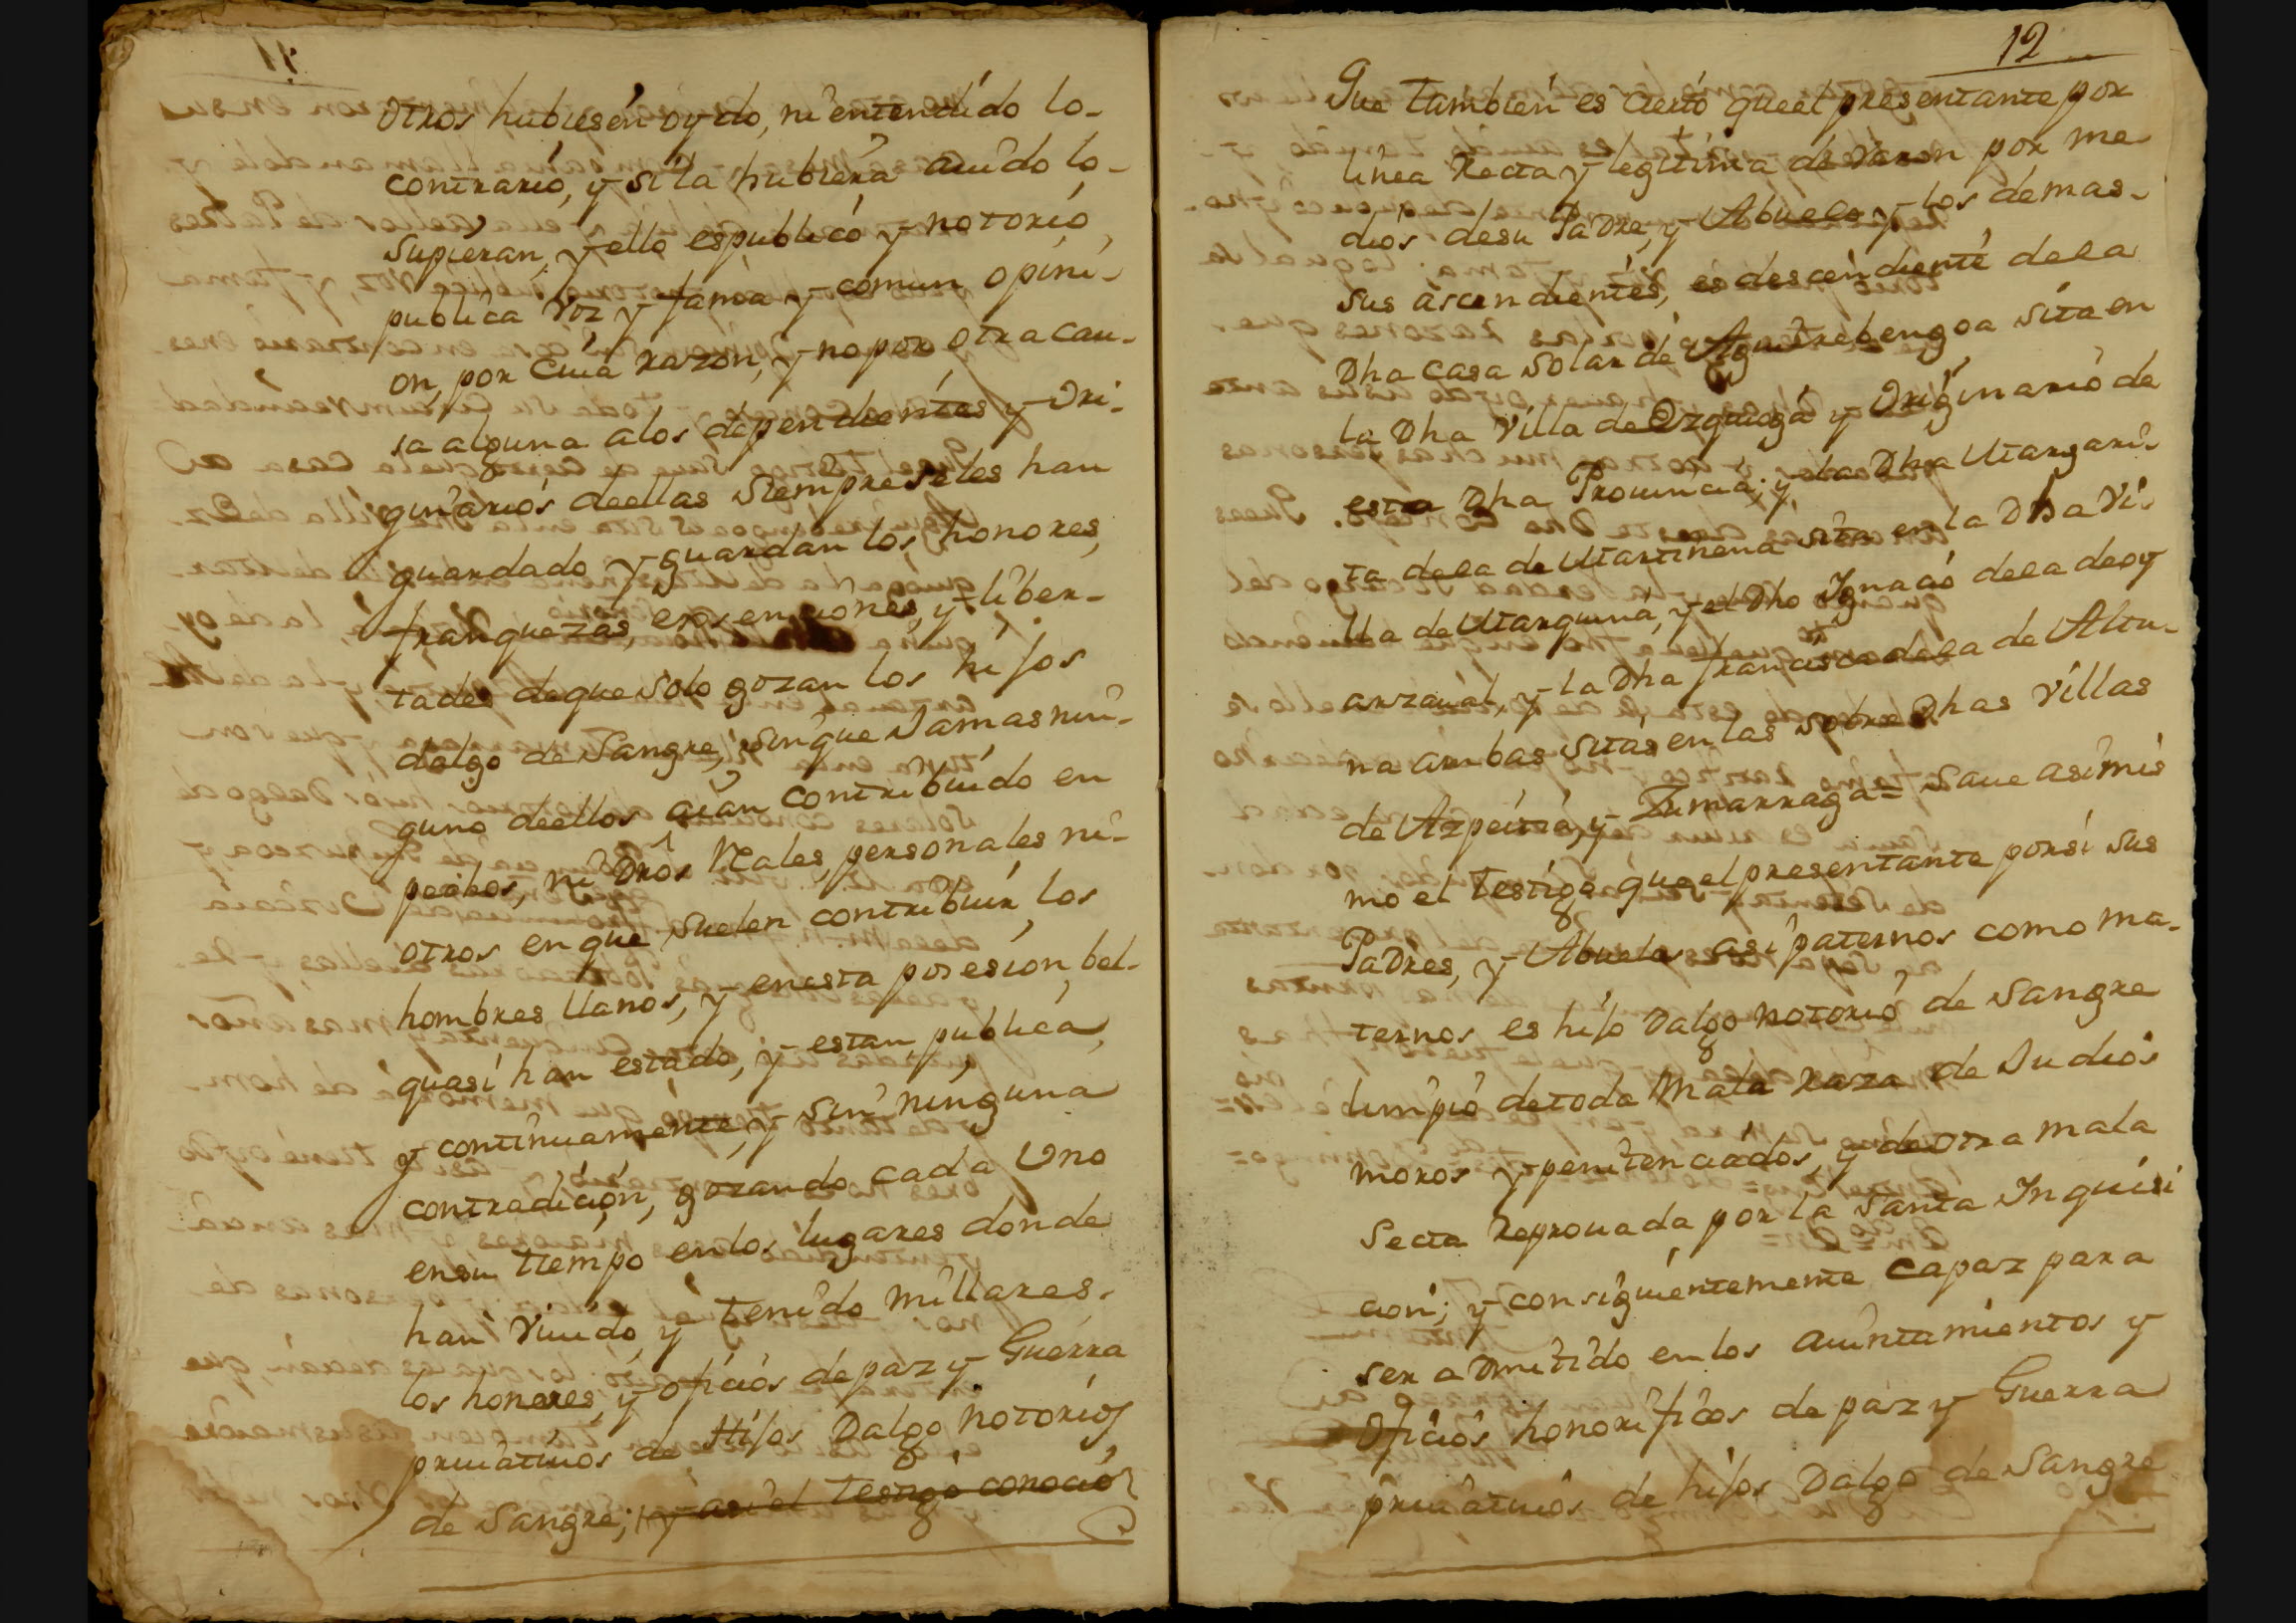 otros hubiesen oydo, ni entendido lo-
contrario, y si la hubiera auido lo-
supieran, y ello es publico y notorio,
publica voz y fama y comun opini-
on, por cuia razon, y no por otra cau-
sa alguna a los dependientes y ori-
ginarios deellas siempre seles han
guardado y guardan los honores,
franquezas, exsenciones, y liber-
tades deque solo gozan los hijos
dalgo de Sangre, sin que Jamas nin-
guno deellos aian contribuido en
pechos, ni Dros Reales, personales ni-
otros en que suelen contribuir los
hombres llanos, y enesta posesion, bel-
quasi han estado, y estan, publica,
y continuamente, y sin ninguna
contradicion, gozando cada Uno
ensu tiempo en los lugares donde
han viuido, y tenido millares.
los honores, y oficios de paz y Guerra
priuatiuos de Hijos Dalgo notorios
de Sangre; y asi el testigo conocio
12
Que tambien es cierto queel presentante por
linea Recta y legitima de Varon por me
dios desu Padre, y Abuelo y los demas-
sus ascendientes, es descendiente dela
Dha Casa Solar de Aguirrebengoa sita en
la Dha Villa de Ezquioga y Originario de
esta Dha Prouincia; y la Dha Utargari-
ta dela de Utartinena sita en la Dha Vi-
lla de Utarquina, y el Dho Ygnacio dela de oy
arzaual, y la Dha francisca dela de Altu-
na ambas sitas en las sobre Dhas Villas
de Azpeitia, y Zumarraga = Saue asimis
mo el testigo que el presentante porsi sus
Padres, y Abuelos asi paternos como ma-
ternos es hijo Dalgo notorio de Sangre
limpio detoda Mala Raza de Judios
moros y penitenciados, y de otra mala
Secta Reprouada por la Santa Inquisi
cion; y consiguientemente Capaz para
ser aDmitido en los auintamientos y
Oficios honorificos de paz y Guerra
priuatiuos de hijos Dalgo de Sangre